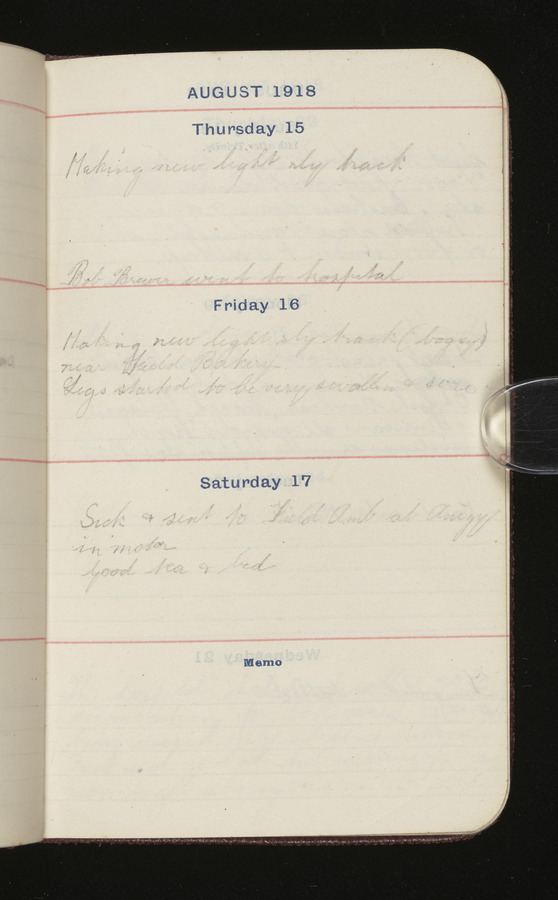 AUGUST 1918
Thursday 15
Making new light rly track
Bob Brewer went to hospital
Friday 16
Making new light rly track (boggy)
near Field Bakery
Legs started to be very swollen & sore
Saturday 17
Sick & sent to Field Amb at
in motor
Good tea & bed
Memo